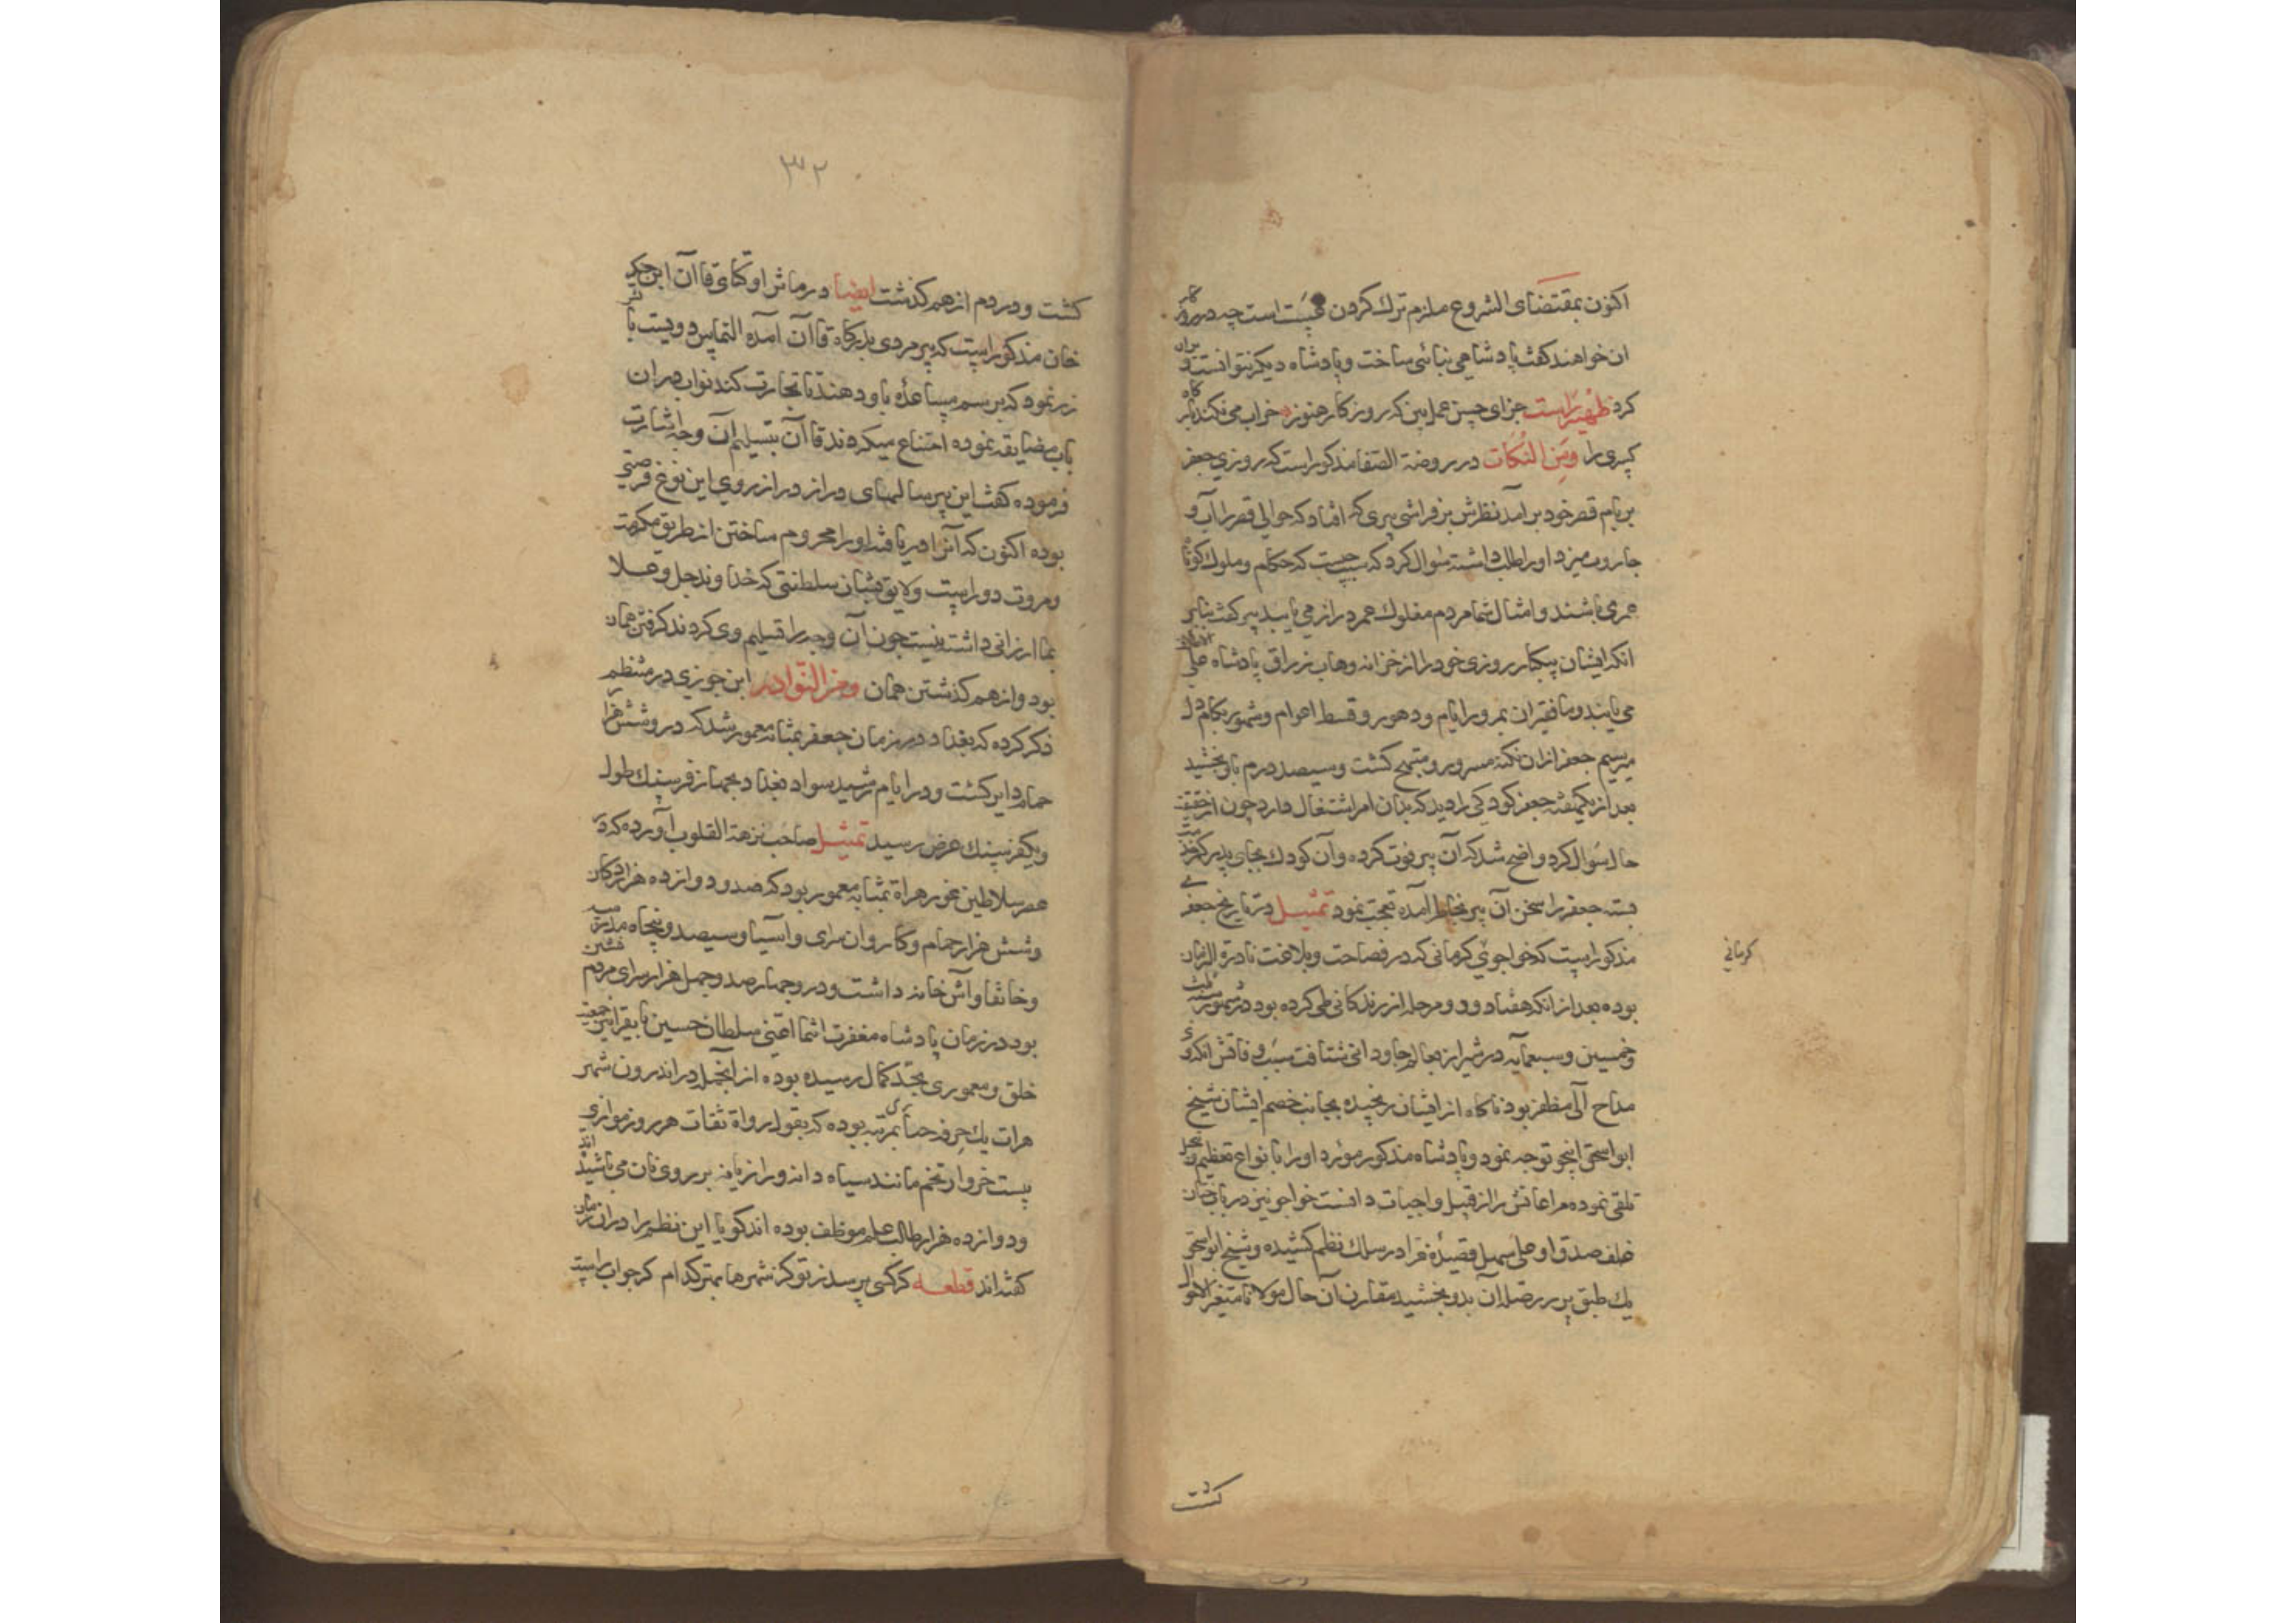 اکنون بمقتضای الشروع ملزم ترک کردن است چه در هر
ان خواهند کفت پادشاهی بنائی ساخت و پادشاه دیکر نتوانست
کرد ظهیر راست جزای حسن عمل بین که روزکار هنوز خراب می نکند بارکاه
کسری را ومن النکات در روضة الصفا مذکور است که روزی جعفر
بر بام قصر خود برآمد نظرش بر فراشی پیری که افتاد که حوالی قصر را آب و
جاروب میزد او را طلب داشته سؤال کرد که سبب چیست که حکام و ملوک کوتاه
عمری باشند و امثال شما مردم مفلوک عمر دراز می یابید پیر کفت بنابر
انکه ایشان بیکبار روزی خود را از خزانه وهاب رزاق پادشاه علی
می یابند و ما فقیران بمرور ایام و دهور و قسط اعوام و شهور بکام دل
میرسیم جعفر ازان نکته مسرور و مبتهج کشت و سیصد درم باو بخشید
بعد از یکهفته جعفر کودکی را دید که بدان امر اشتغال دارد چون از حقیقت
حال سؤال کرد واضح شد که آن پیر فوت کرده و آن کودک بجای پدر کمر خدمت
بسته جعفر را سخن آن پیر بخاطر آمده تعجب نمود تمثیل در تاریخ جعفری
مذکور است که خواجوی کرمانی که در فصاحت و بلاغت نادرة الزمان
کرمانی
بوده بعد از انکه هفتاد و دو مرحله از زندکانی طی کرده بود در شهور سنه ثلث
وخمسین وسبعمایه در شیراز بعالم جاودانی شتافت سبب وفاتش انکه وی
مداح آل مظفر بود ناکاه از ایشان رنجیده بجانب خصم ایشان شیخ
ابواسحق اینجو توجه نمود و پادشاه مذکور مورد او را بانواع تعظیم و تبجیل
تلقی نموده مراعاتش را از قبیل واجبات دانست خواجو نیز در باب
خلف صدق او علی سهیل قصیدۀ غرا در سلک نظم کشیده و شیخ ابواسحق
یک طبق پر زر صلۀ آن بدو بخشید مقارن آن حال مولانا متغیر الاحوال
کشت
۳۲
کشت و در دم از هم کذشت ایضا در مآثر اوکتای قاآن ابن چنکیز
خان مذکور است که پیر مردی بدرکاه قاآن آمده التماس دویست بالش
زر نمود که برسم مساعده باو دهند تا تجارت کند نواب دران
باب مضایقه نموده امتناع میکردند قاآن بتسلیم آن وجه اشارت
فرموده کفت این پیر سالهای دراز در آرزوی این نوع فرصتی
بوده اکنون که آنرا دریافته او را محروم ساختن از طریق مکرمت
ومروت دور است و لایق بشان سلطنتی که خداوند جل وعلا
بما ارزانی داشته نیست چون آن وجه را تسلیم وی کردند کرفتن همان
بود و از هم کذشتن همان ومن النوادر ابن جوزی در منتظم
ذکر کرده که بغداد در زمان جعفر بمثابه معمور شد که در و شش هزار
حمام دایر کشت و در ایام رشید سواد بغداد بچهار فرسنک طول
و یکفرسنک عرض رسید تمثیل صاحب نزهة القلوب آورده که در
عصر سلاطین غور هراة بمثابه معمور بود که صد و دوازده هزار دکان
و شش هزار حمام و کاروان سرای و آسیا و سیصد و پنجاه مدرسه
و خانقاه و آتش خانه داشت و در و چهار صد و چهل هزار سرای مردم نشین
بود در زمان پادشاه مغفرت انتما اعنی سلطان حسین بایقرا نیز جمعیت
خلق و معموری بحد کمال رسیده بوده از آنجمله در اندرون شهر
هرات یک حرفه بمرتبه بوده که بقول رواة ثقات هر روز موازی
بیست خروار تخم مانند سیاه دانه و رازیانه بر روی نان می پاشیده اند
و دوازده هزار طالب علم موظف بوده اند کویا این نظم را دران زمان
کفته اند قطعه کر کسی پرسد ز تو کز شهرها بهتر کدام کر جواب راست